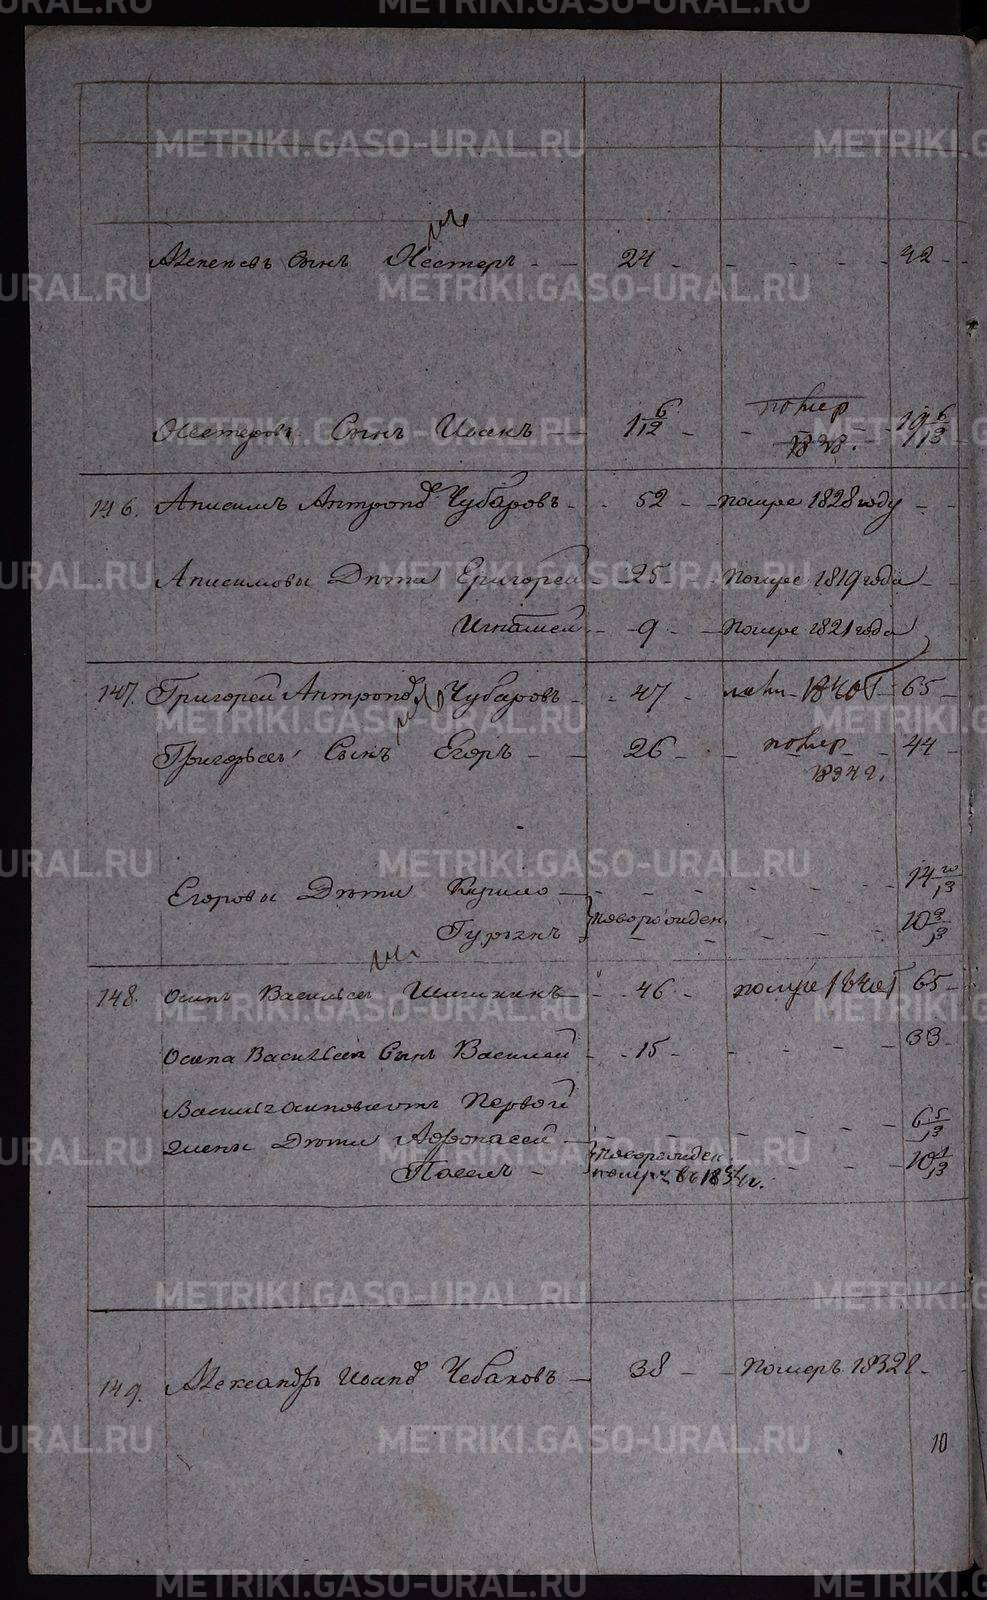 METRIKI.GASO-URAL.RU
сынъ Нестеръ 24 42
Нестеровъ Сынъ Иванъ 1 6/12 помер 1838. 19 6/13
146. Анисимъ Антропов Чубаровъ 52 помре 1828 году
Анисимовы Дѣти Григорей 25 помре 1819 года
Игнатей 9 помре 1821 года
147. Григорей Антропов Чубаровъ 47 1840 65
Григорьев Сынъ Егоръ 26 помер 44
Егоровы Дѣти Кирило 14
Гурьянъ новорожден. 10
148. Осипъ Васильев Шишкинъ 46 помре 1840 65
Осипа Васильева Сынъ Василей 15 33
Василья Осиповича отъ Первой
жены Дѣти Афонасей 6
Павелъ новорожден. 10
149. Александръ Иванов Чебаковъ 38 померъ 1832 г.
10